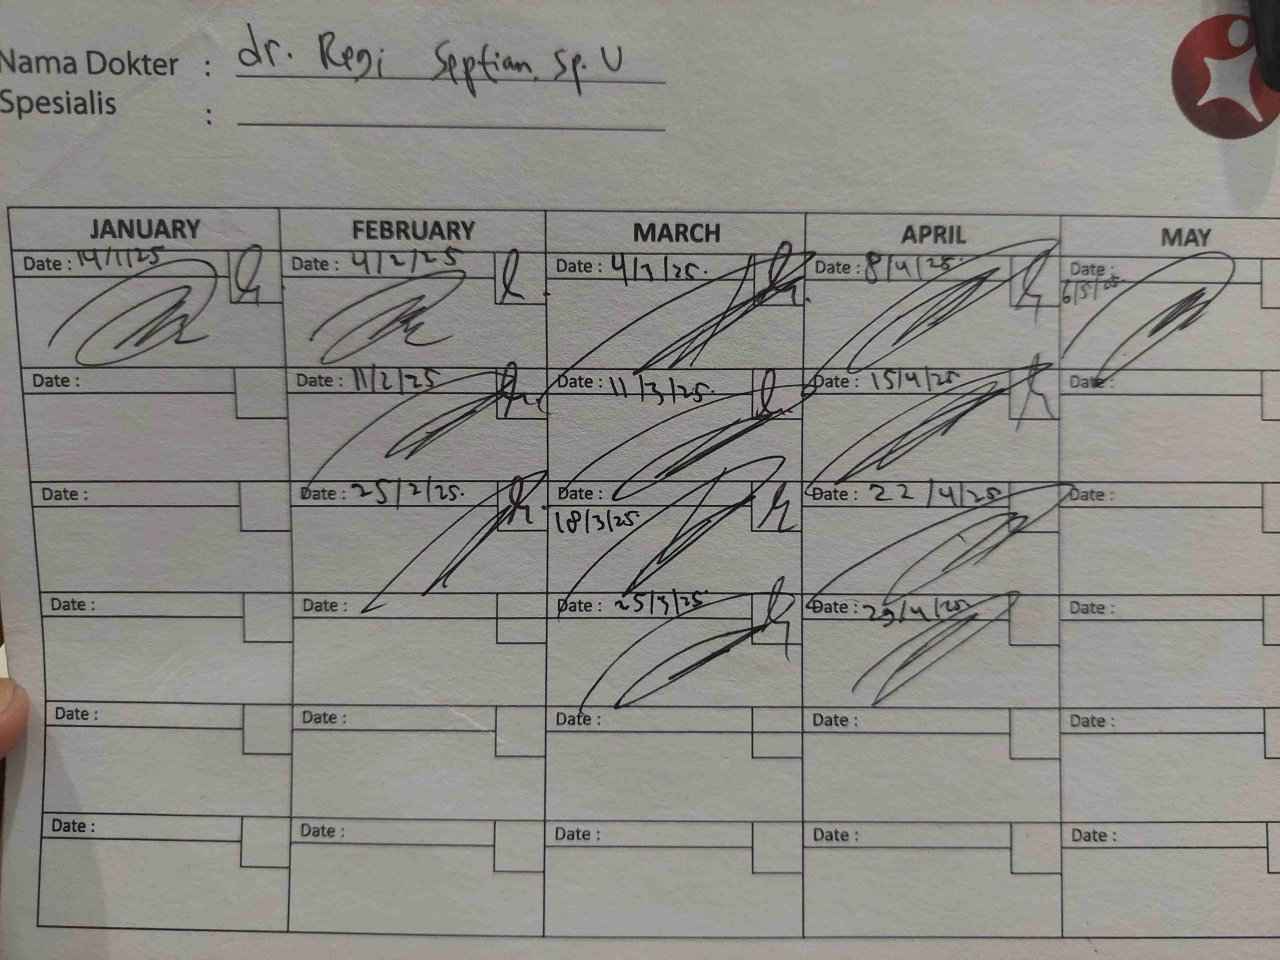 Nama Dokter : dr. Regi Septian. Sp. U
Spesialis :
JANUARY FEBRUARY MARCH APRIL MAY
Date : 14/1/25 Date : 4/2/25 Date : 4/3/25. Date : 8/4/25. Date : 6/5/25
Date : Date : 11/2/25 Date : 11/3/25. Date : 15/4/25 Date :
Date : Date : 25/2/25. Date : 18/3/25 Date : 22/4/25 Date :
Date : Date : Date : 25/3/25. Date : 29/4/25 Date :
Date : Date : Date : Date : Date :
Date : Date : Date : Date : Date :